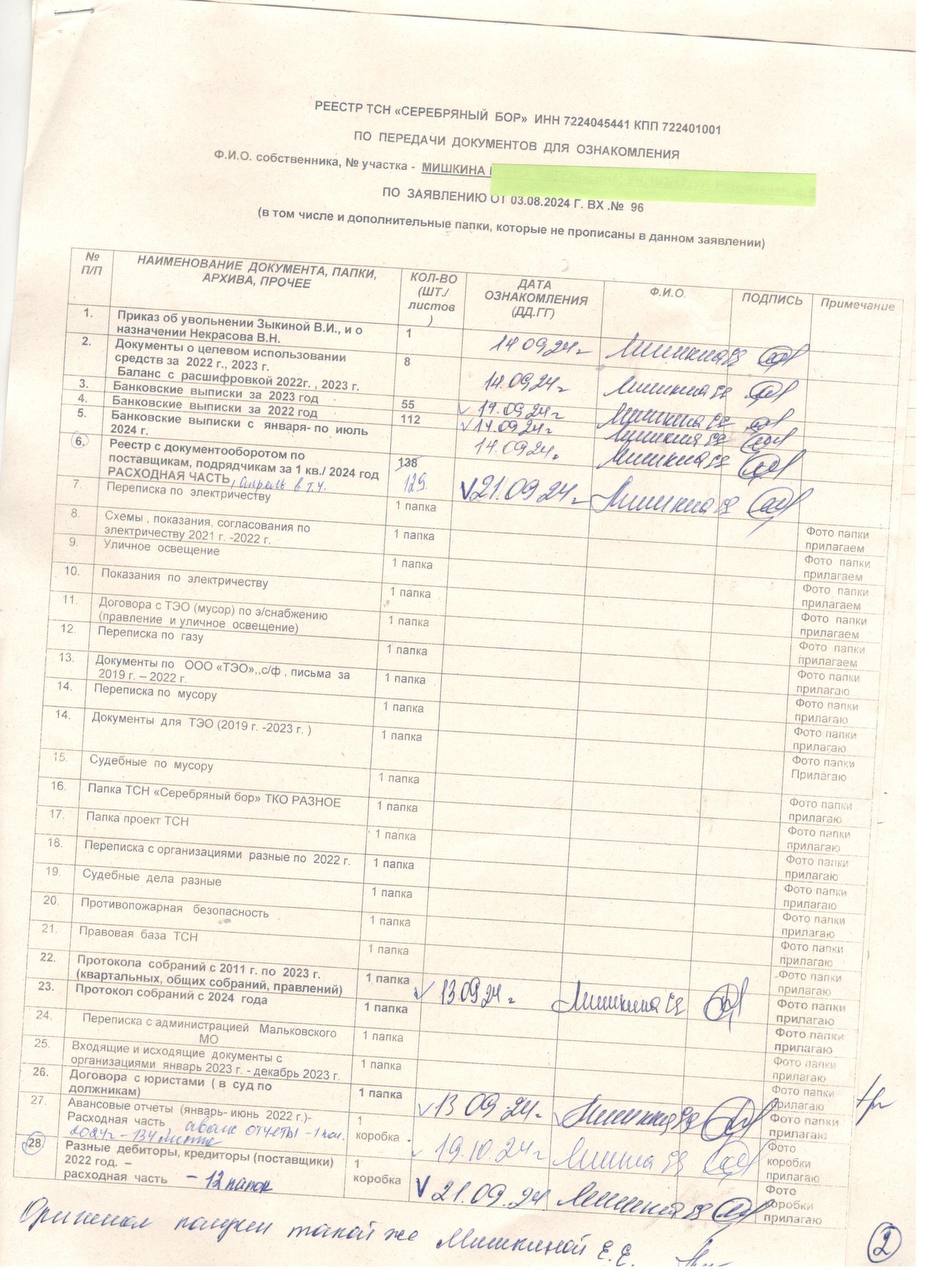 РЕЕСТР ТСН «СЕРЕБРЯНЫЙ БОР» ИНН 7224045441 КПП 722401001
ПО ПЕРЕДАЧИ ДОКУМЕНТОВ ДЛЯ ОЗНАКОМЛЕНИЯ
Ф.И.О. собственника, № участка - МИШКИНА
ПО ЗАЯВЛЕНИЮ ОТ 03.08.2024 Г. ВХ .№ 96
(в том числе и дополнительные папки, которые не прописаны в данном заявлении)
№ П/П НАИМЕНОВАНИЕ ДОКУМЕНТА, ПАПКИ, АРХИВА, ПРОЧЕЕ КОЛ-ВО (ШТ./ листов) ДАТА ОЗНАКОМЛЕНИЯ (ДД.ГГ) Ф.И.О. ПОДПИСЬ Примечание
1. Приказ об увольнении Зыкиной В.И., и о
назначении Некрасова В.Н. 1 14 09 24 г Мишкина
2. Документы о целевом использовании
средств за 2022 г., 2023 г.
Баланс с расшифровкой 2022г. , 2023 г. 8 14.09.24 г Мишкина
3. Банковские выписки за 2023 год 55 14.09.24 г Мишкина
4. Банковские выписки за 2022 год 112 14.09.24 г Мишкина
5. Банковские выписки с января- по июль
2024 г. 14.09.24 г. Мишкина
6. Реестр с документооборотом по
поставщикам, подрядчикам за 1 кв./ 2024 год
РАСХОДНАЯ ЧАСТЬ, апрель в т.ч. 138 129 21.09 24 г Мишкина
7. Переписка по электричеству 1 папка
8. Схемы , показания, согласования по
электричеству 2021 г. -2022 г. 1 папка Фото папки прилагаем
9. Уличное освещение 1 папка Фото папки прилагаем
10. Показания по электричеству 1 папка Фото папки прилагаем
11. Договора с ТЭО (мусор) по э/снабжению
(правление и уличное освещение) 1 папка Фото папки прилагаем
12. Переписка по газу 1 папка Фото папки прилагаем
13. Документы по ООО «ТЭО»,,с/ф , письма за
2019 г. – 2022 г. 1 папка Фото папки прилагаю
14. Переписка по мусору 1 папка Фото папки прилагаю
14. Документы для ТЭО (2019 г. -2023 г. ) 1 папка Фото папки прилагаю
15. Судебные по мусору 1 папка Фото папки Прилагаю
16. Папка ТСН «Серебряный бор» ТКО РАЗНОЕ 1 папка Фото папки прилагаю
17. Папка проект ТСН 1 папка Фото папки прилагаю
18. Переписка с организациями разные по 2022 г. 1 папка Фото папки прилагаю
19. Судебные дела разные 1 папка Фото папки прилагаю
20. Противопожарная безопасность 1 папка Фото папки прилагаю
21. Правовая база ТСН 1 папка Фото папки прилагаю
22. Протокола собраний с 2011 г. по 2023 г.
(квартальных, общих собраний, правлений) 1 папка 13 09 24 г Мишкина Фото папки прилагаю
23. Протокол собраний с 2024 года 1 папка Фото папки прилагаю
24. Переписка с администрацией Мальковского
МО 1 папка Фото папки прилагаю
25. Входящие и исходящие документы с
организациями январь 2023 г. - декабрь 2023 г. 1 папка Фото папки прилагаю
26. Договора с юристами ( в суд по
должникам) 1 папка 13 09 24 г Мишкина Фото папки прилагаю
27. Авансовые отчеты (январь- июнь 2022 г.)-
Расходная часть аванс отчеты
2024 г – 134 листа 1 коробка 19.10.24 г Мишкина Фото коробки прилагаю
28. Разные дебиторы, кредиторы (поставщики)
2022 год. –
расходная часть – 12 папок 1 коробка 21.09.24 Мишкина Фото коробки прилагаю
Оригинал получен такой же Мишкиной Е.Е.
2